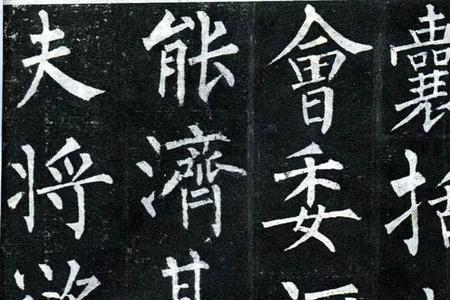 囊括
會委
能濟其
夫將